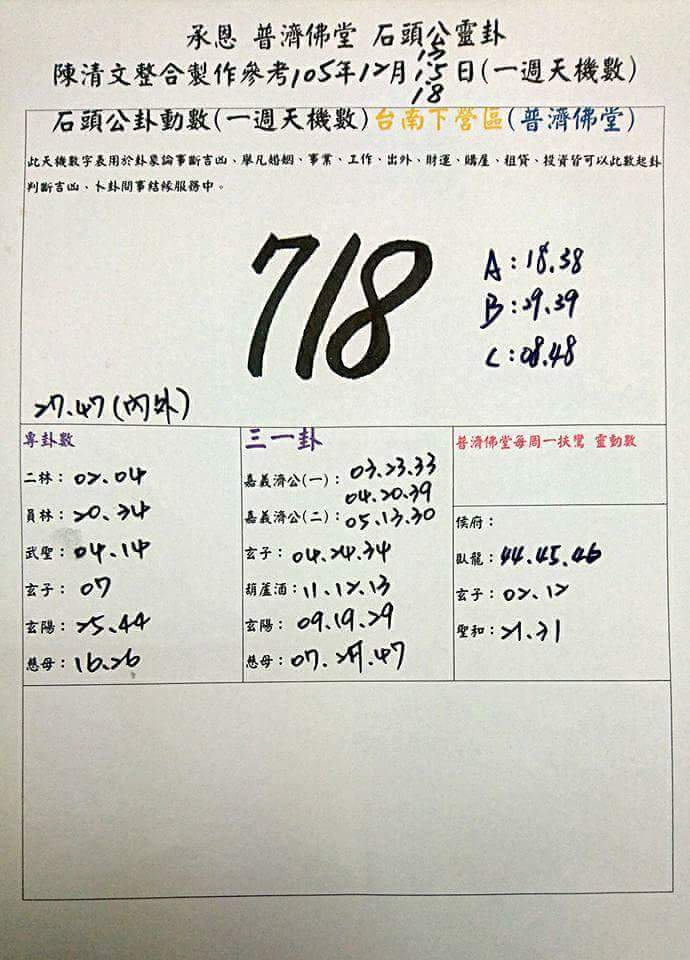 承恩 普濟佛堂 石頭公靈卦
陳清文整合製作參考105年12月15日(一週天機數)
18
石頭公卦動數(一週天機數)台南下營區(普濟佛堂)
此天機數字表用於卦象論事斷吉凶、舉凡婚姻、事業、工作、出外、財運、購屋、租貸、投資皆可以此數起卦
判斷吉凶、卜卦問事結緣服務中。
718
A:18.38
B:29.39
C:08.48
27.47(內外)
專卦數
二林:02.04
員林:20.34
武聖:04.14
玄子:07
玄陽:25.44
慈母:16.26
三一卦
嘉義濟公(一):03.23.33
04.20.39
嘉義濟公(二):05.13.30
玄子:04.24.34
葫蘆酒:11.12.13
玄陽:09.19.29
慈母:07.27.47
普濟佛堂每周一扶鸞 靈動數
侯府:
臥龍:44.45.46
玄子:02.12
聖和:21.31